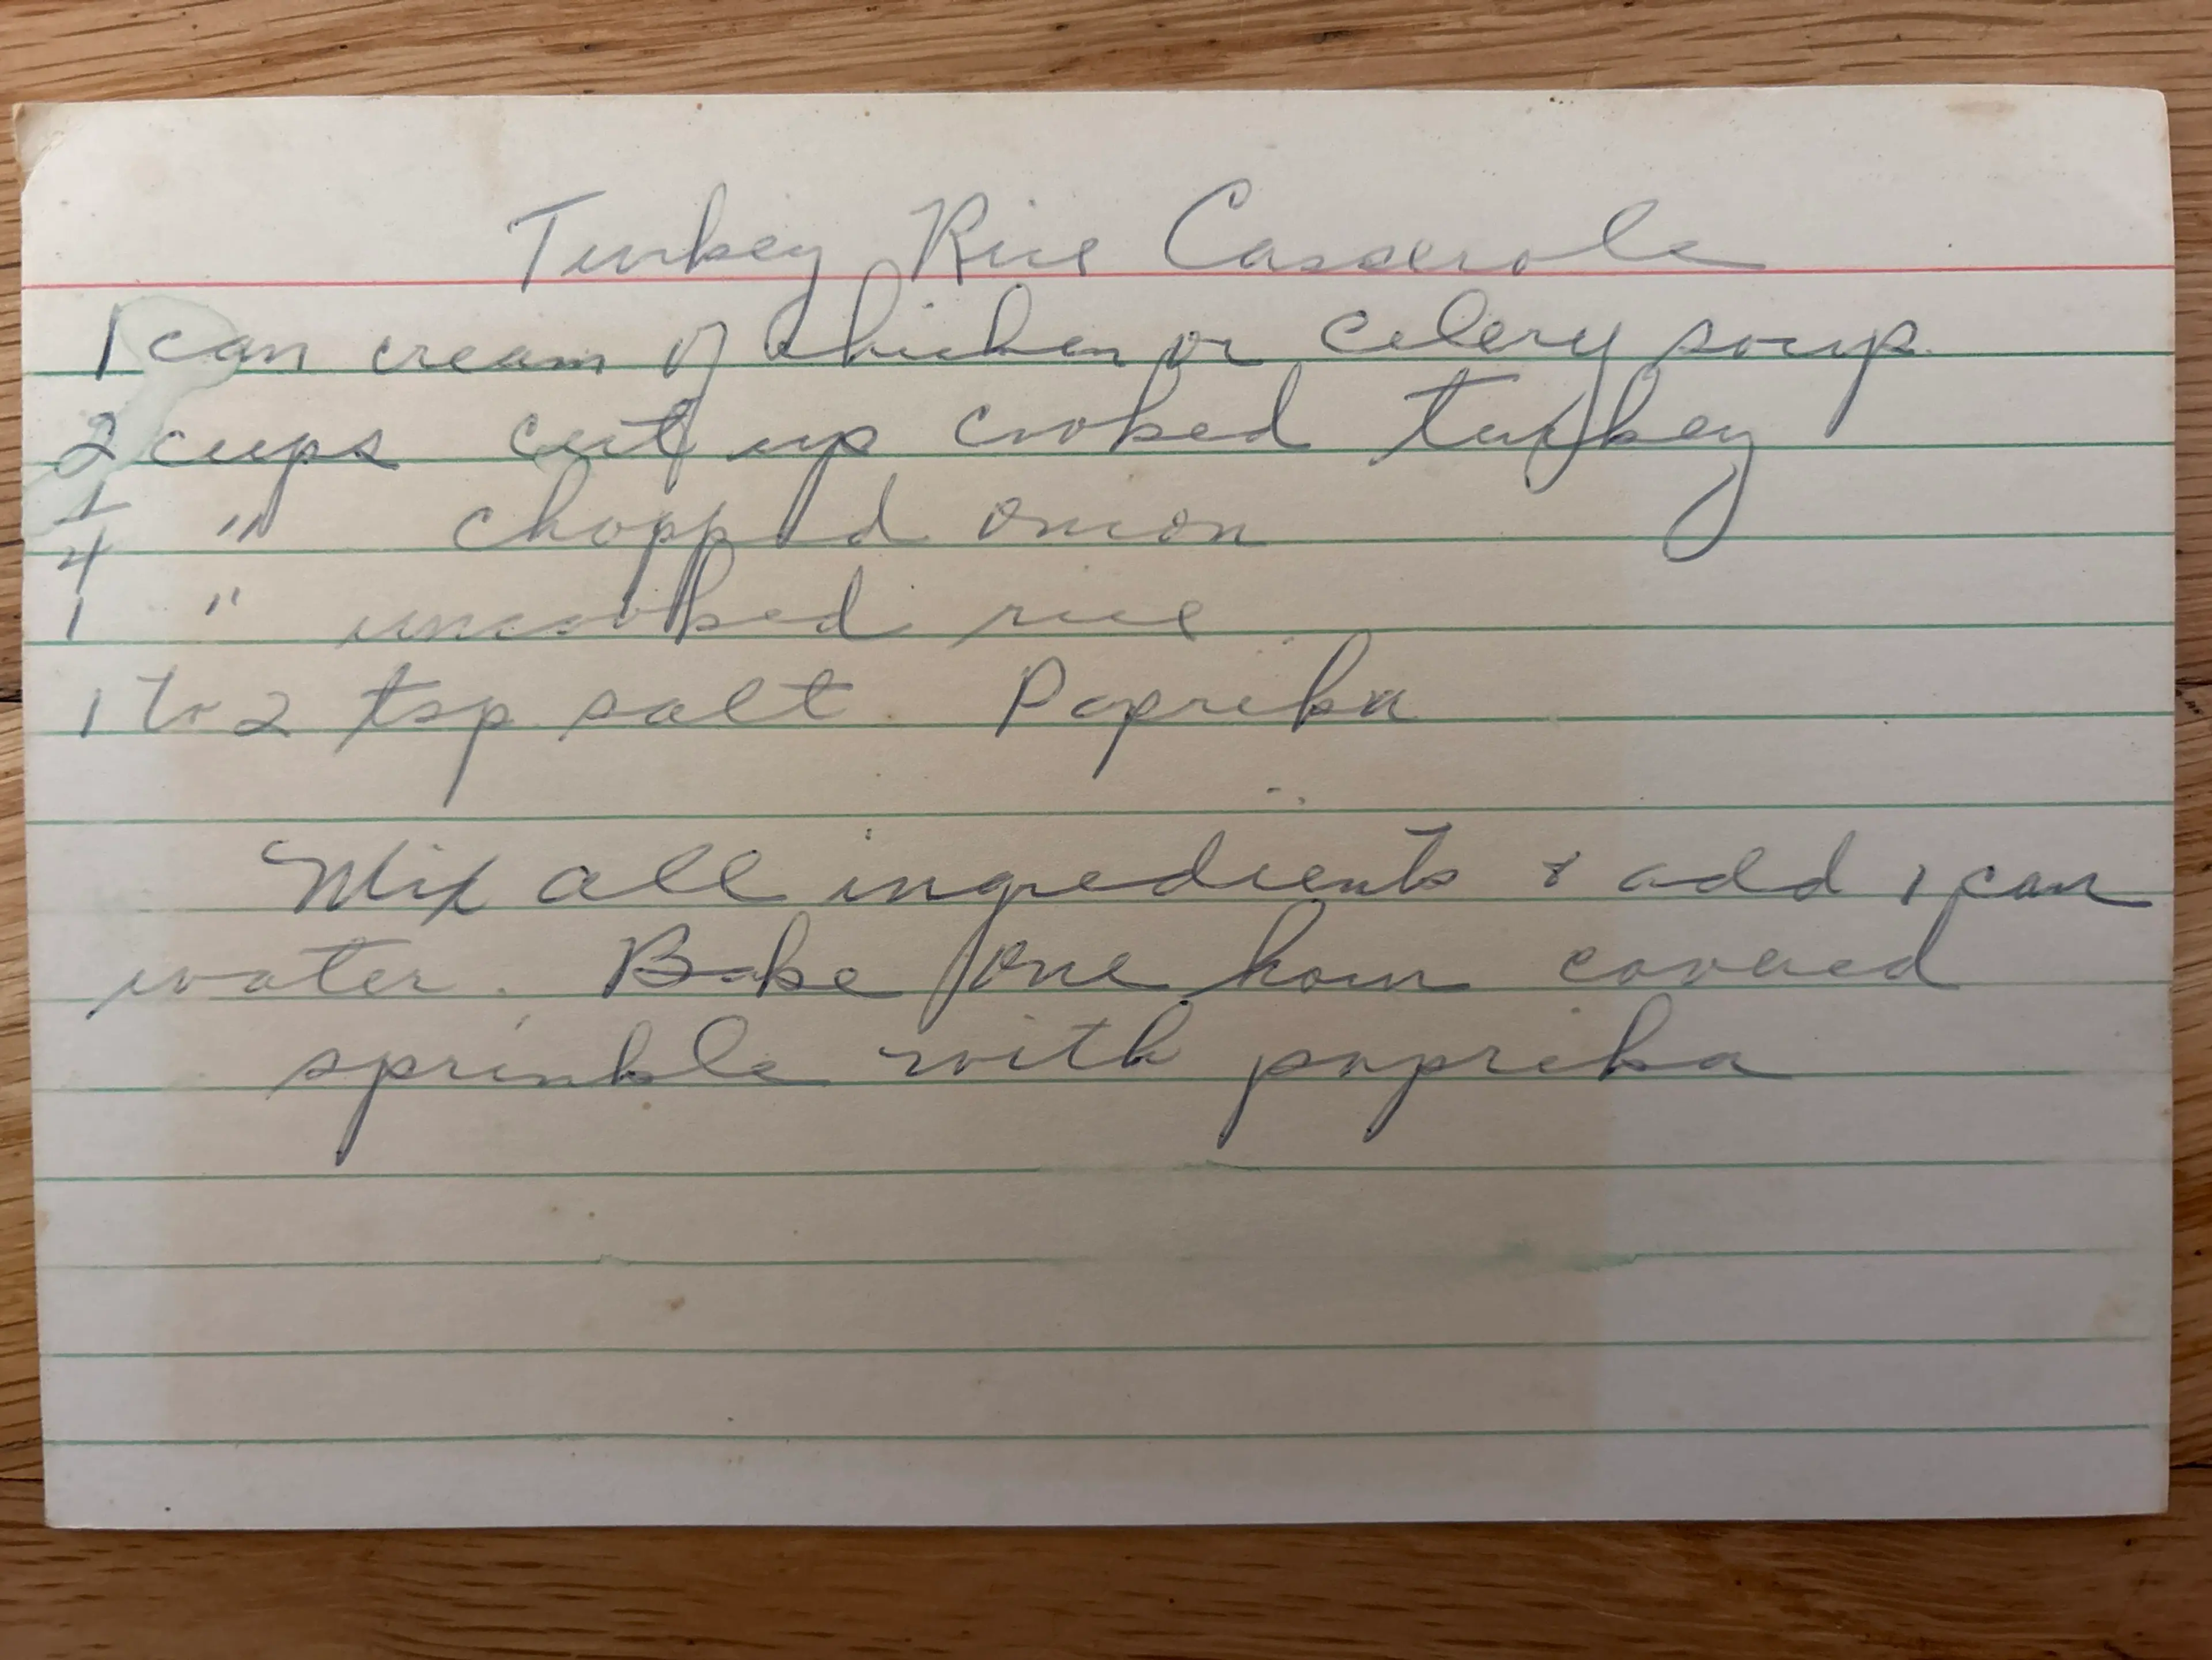 Turkey Rice Casserole
1 can cream of chicken or celery soup.
2 cups cut up cooked turkey
1/4 " chopped onion
1 " uncooked rice
1 to 2 tsp salt. Paprika
Mix all ingredients & add 1 can
water. Bake one hour covered
sprinkle with paprika